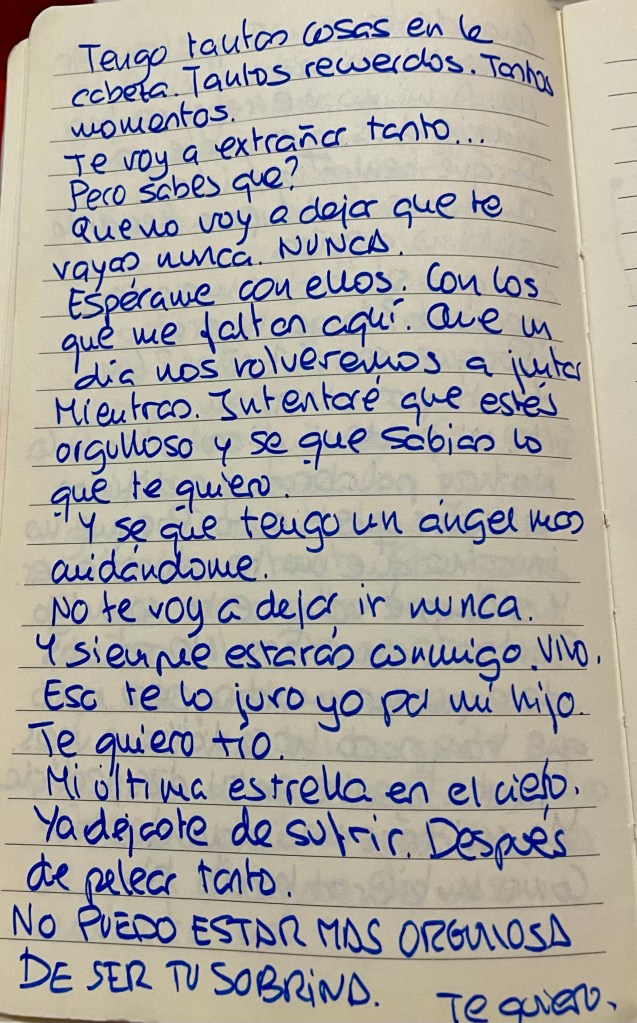 Tengo tantas cosas en la
cabeza. Tantos recuerdos. Tantos
momentos.
Te voy a extrañar tanto...
Pero sabes que?
Que no voy a dejar que te
vayas nunca. NUNCA.
Espérame con ellos. Con los
que me faltan aquí. Que un
día nos volveremos a juntar
Mientras. Intentaré que estés
orgulloso y se que sabias lo
que te quiero.
Y se que tengo un ángel mas
cuidándome.
No te voy a dejar ir nunca.
Y siempre estarás conmigo. VIVO.
Eso te lo juro yo por mi hijo.
Te quiero tío.
Mi última estrella en el cielo.
Ya dejaste de sufrir. Después
de pelear tanto.
NO PUEDO ESTAR MAS ORGULLOSA
DE SER TU SOBRINA. Te quiero.